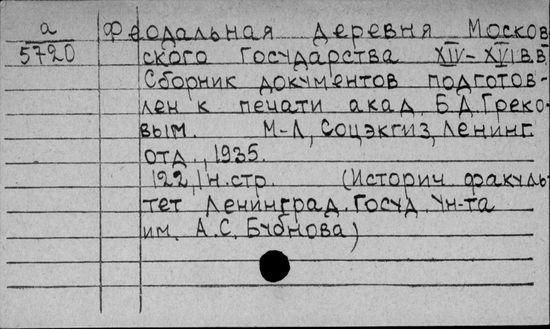 а
5720
Феодальная деревня Москов
ского Государства XIV-XVIв.в.
Сборник документов подготов-
лен к печати акад. Б.Д. Греко-
вым. М-Л, Соцэкгиз, Ленинг.
отд., 1935.
122, 1 н.стр. (Историч. факуль-
тет Ленинград. Госуд. Ун-та
им. А.С. Бубнова)